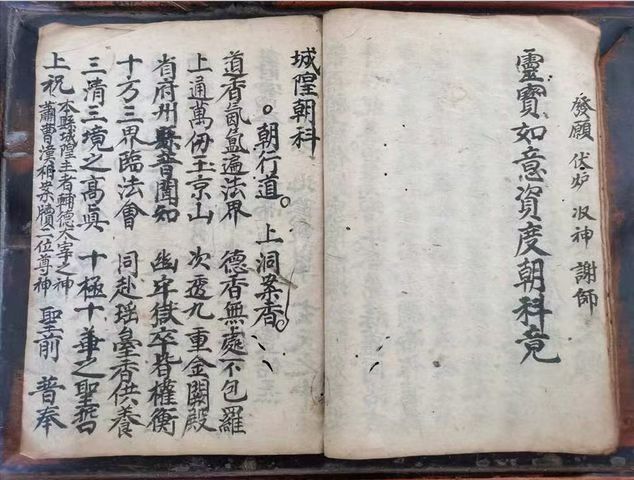 發願 伏炉 収神 謝師
靈寳如意資度朝科竟
城隍朝科
。朝行道。上洞案香。
道香氤氳遍法界 德香無處不包羅
上通萬仞玉京山 次透九重金闕殿
省府州縣普聞知 幽牢獄卒皆權衡
十方三界臨法會 同赴瑤臺香供養
三清三境之髙真 十極十華之聖
上祝 本縣城隍主者輔德大宰之神
蕭曹 案牘二位尊神 聖前 普奉